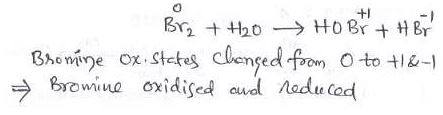 Br₂⁰ + H₂O → HOBr⁺¹ + HBr⁻¹
Bromine ox. states changed from 0 to +1 & -1
⇒ Bromine oxidised and reduced